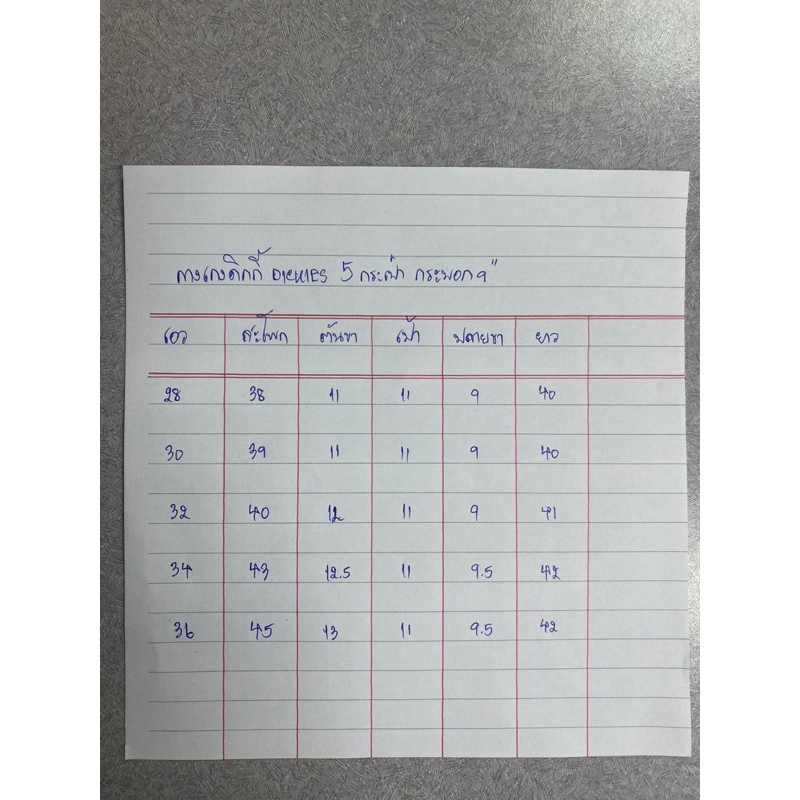 กางเกงดิกกี้ DICKIES 5 กระเป๋า กระบอก 9"
เอว สะโพก ต้นขา เป้า ปลายขา ยาว
28 38 11 11 9 40
30 39 11 11 9 40
32 40 12 11 9 41
34 43 12.5 11 9.5 42
36 45 13 11 9.5 42